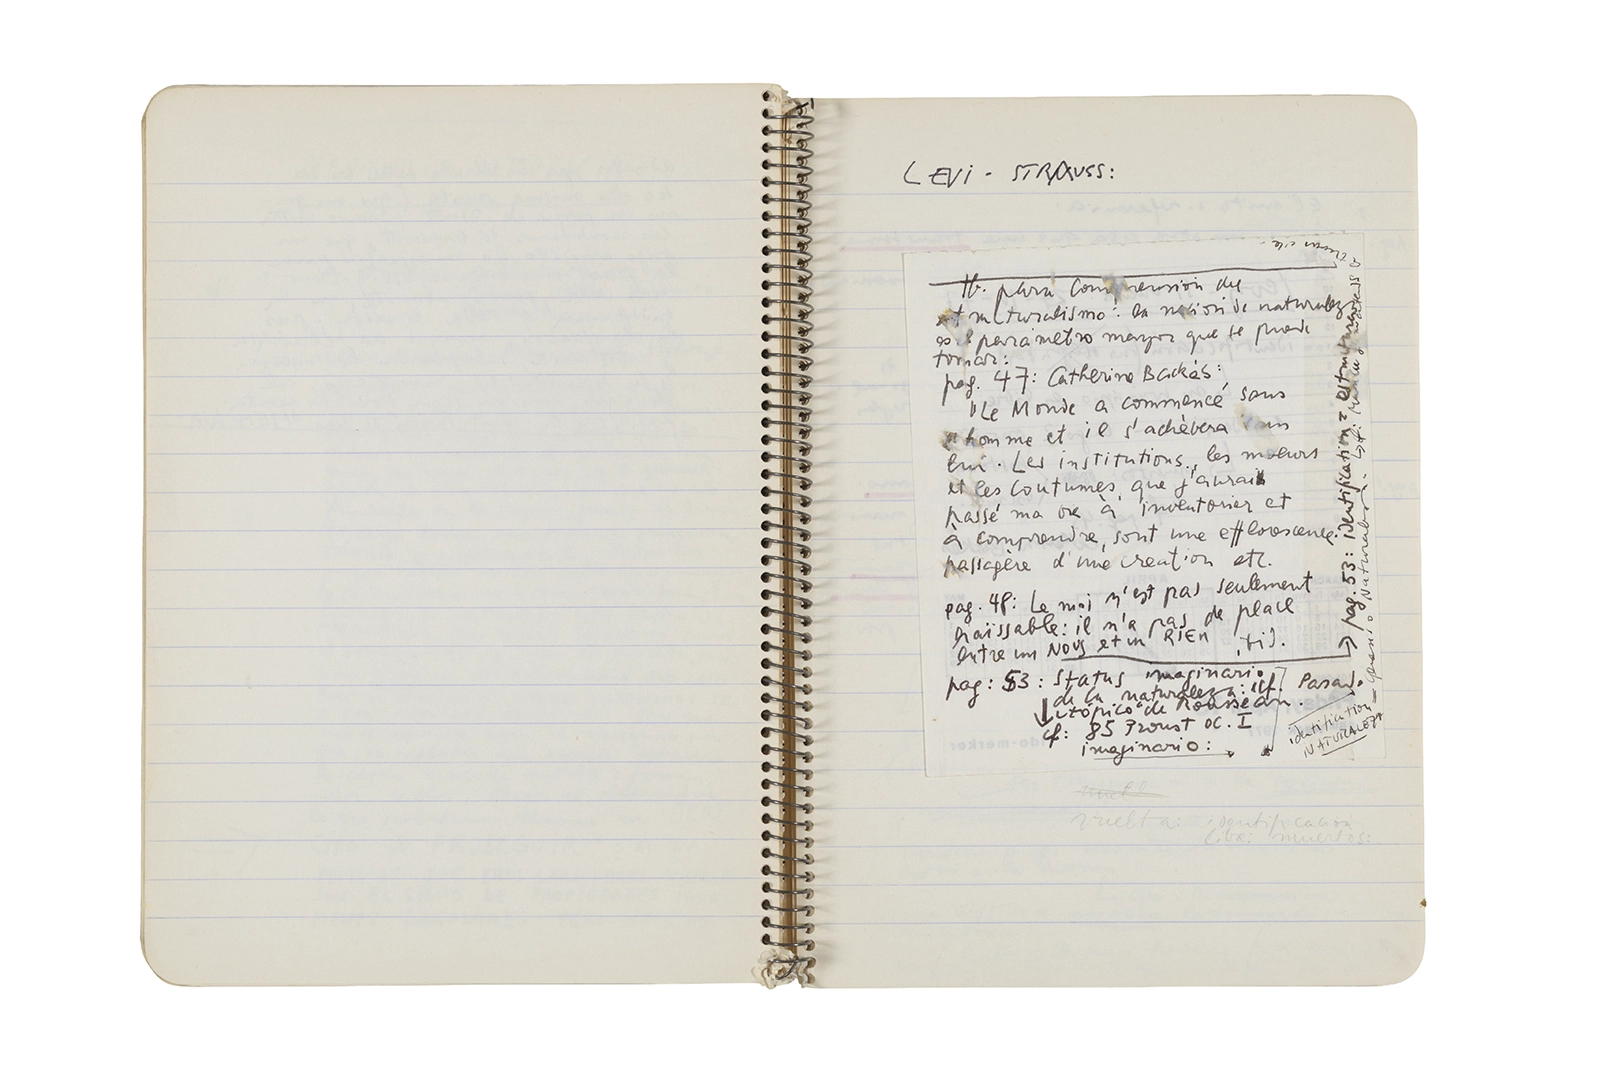 LEVI - STRAUSS:
para comprensión del
estructuralismo: la noción de naturaleza
es el parámetro mayor que se puede
tomar:
pag. 47: Catherine Backès:
"Le Monde a commencé sans
l'homme et il s'achèvera sans
lui. Les institutions, les moeurs
et les coutumes, que j'aurais
passé ma vie à inventorier et
à comprendre, sont une efflorescence
passagère d'une creation etc.
pag. 48: Le moi n'est pas seulement
haïssable: il n'a pas de place
entre un NOUS et un RIEN
pag: 53: Status imaginario
de la naturaleza: cf.
utópico de Rousseau.
cf: 85 Proust oc. I
imaginario:
Pasado
identification
NATURALEZA
pag. 53: identification =
vuelta: identification
muertos: